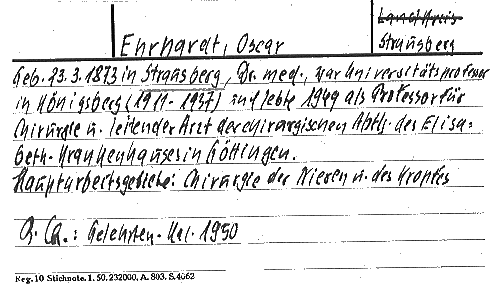 Landkreis
Strausberg
Ehrhardt, Oscar
Geb. 23.3.1873 in Strausberg, Dr. med., war Universitätsprofessor
in Königsberg (1911-1937) und lebte 1949 als Professor für
Chirurgie u. leitender Arzt der chirurgischen Abtlg. des Elisa=
beth-Krankenhauses in Göttingen.
Hauptarbeitsgebiete: Chirurgie der Nieren u. des Kropfes
Gelehrten-Kal. 1950
Reg. 10 Stichnote. 1. 50. 232000. A. 803. S. 4062